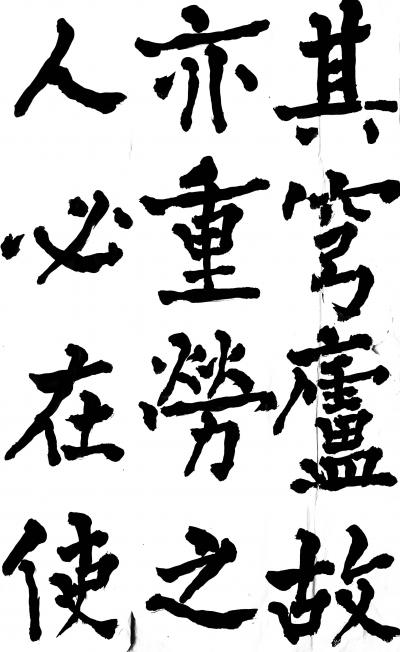 其穹廬故
亦重勞之
人必在使